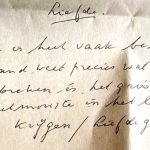 Liefde.
is heel vaak bes
and weet precies wat
breken is. het gro
elmooiste in het l
krijgen / Liefde g